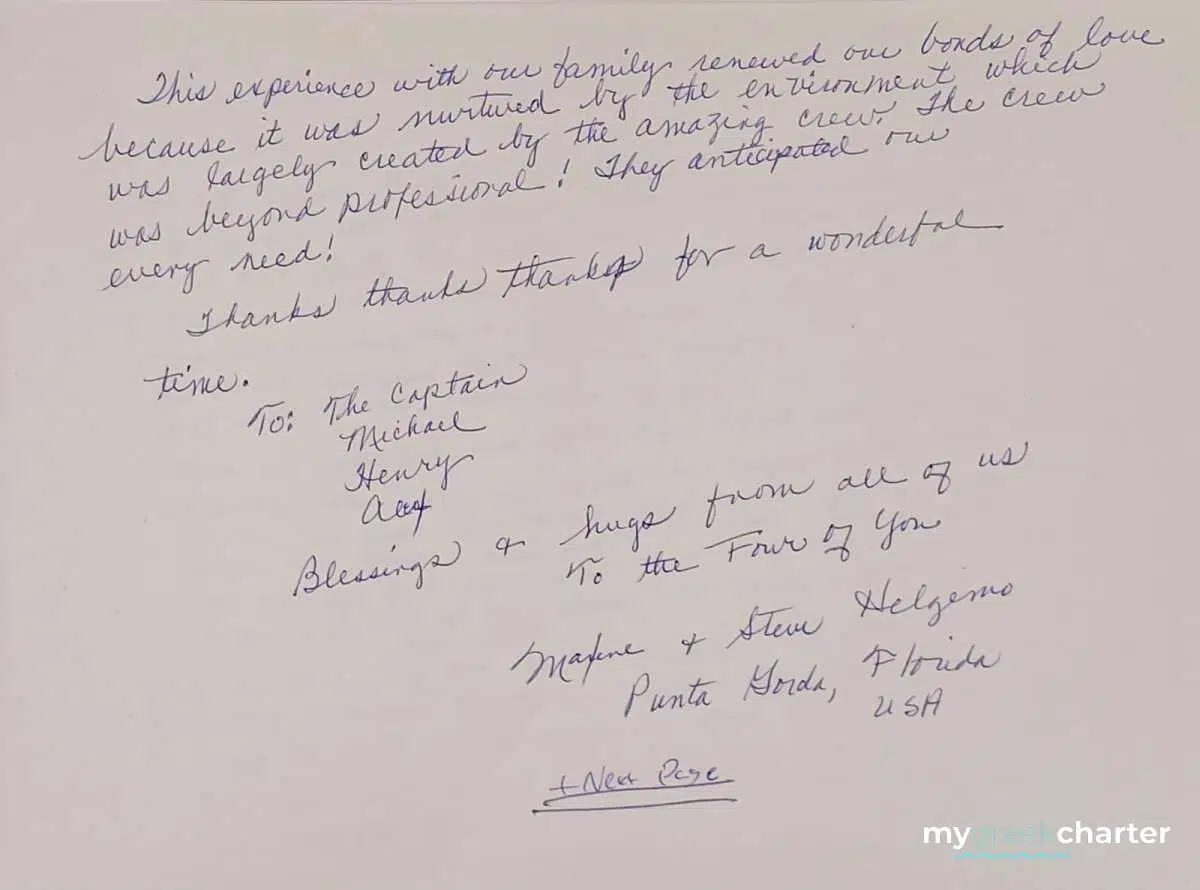 This experience with our family renewed our bonds of love
because it was nurtured by the environment which
was largely created by the amazing crew. The crew
was beyond professional! They anticipated our
every need!
Thanks thanks thanks for a wonderful
time.
To: The Captain
Michael
Henry
Blessings & hugs from all of us
To the Four of You
Maxine & Steve Helgemo
Punta Gorda, Florida
USA
+ Next Page
mygreekcharter